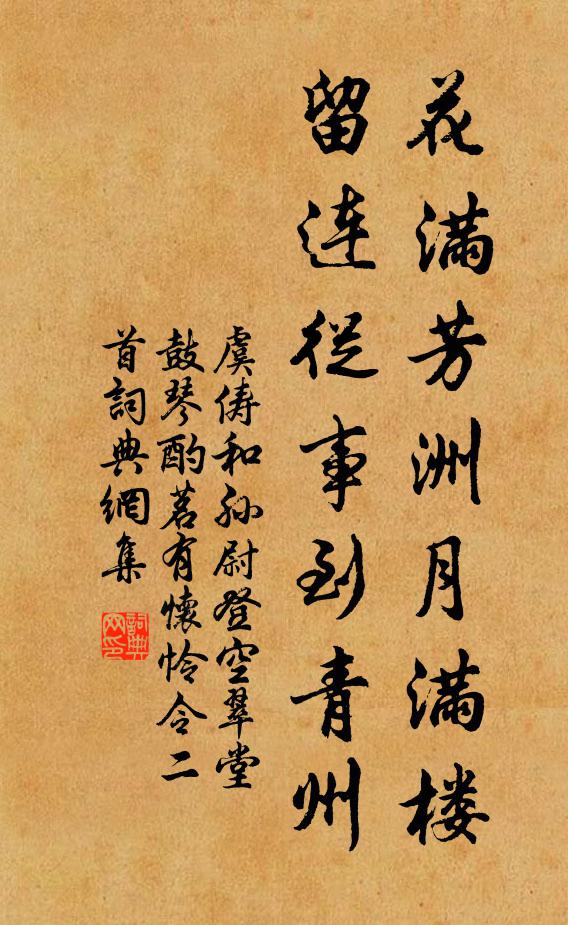 花满芳洲月满楼
留连從事到青州
虞俦和孙尉登空翠堂
鼓琴酌茗有懷怜令二
首詞典網集
詞典
网印